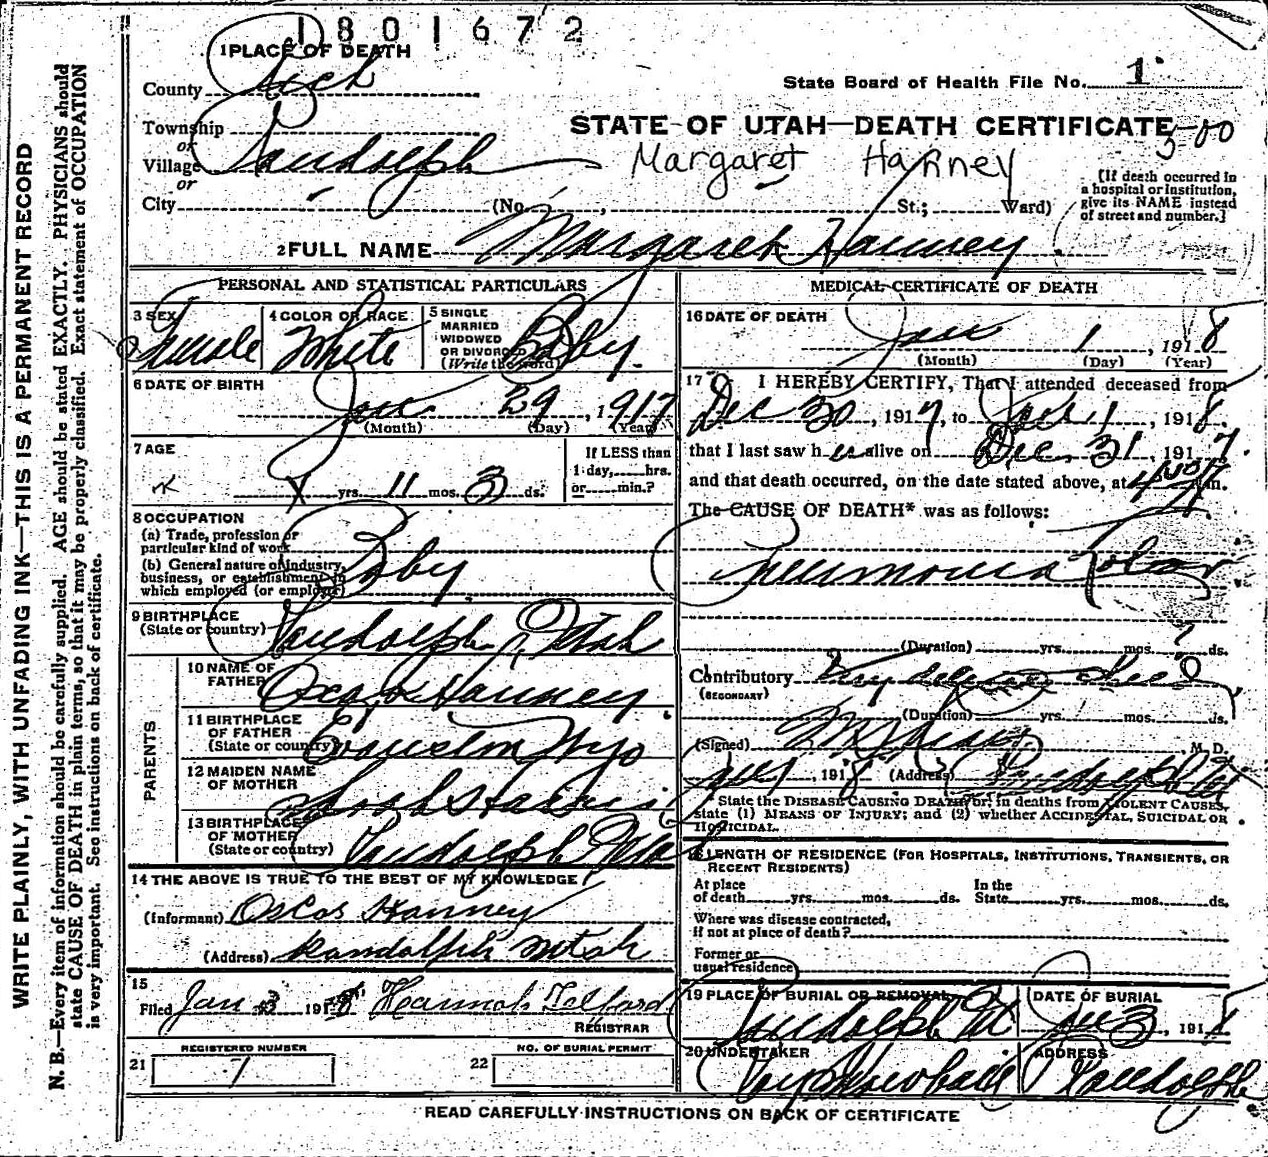 1801672
1 PLACE OF DEATH
County Rich
State Board of Health File No. 1
Township
or
Village Randolph
or
City
STATE OF UTAH—DEATH CERTIFICATE
Margaret Hanney
(No. , St.; Ward)
[If death occurred in
a hospital or institution,
give its NAME instead
of street and number.]
2 FULL NAME Margaret Hanney
PERSONAL AND STATISTICAL PARTICULARS
3 SEX
Female
4 COLOR OR RACE
White
5 SINGLE
MARRIED
WIDOWED
OR DIVORCED
(Write the word)
Baby.
6 DATE OF BIRTH
Jan 29, 1917
(Month) (Day) (Year)
7 AGE
yrs. 11 mos. 3 ds.
If LESS than
1 day, hrs.
or min.?
8 OCCUPATION
(a) Trade, profession or
particular kind of work
(b) General nature of industry,
business, or establishment in
which employed (or employer)
Baby.
9 BIRTHPLACE
(State or country) Randolph, Utah
PARENTS
10 NAME OF
FATHER
Hanney
11 BIRTHPLACE
OF FATHER
(State or country) Evanston Wyo
12 MAIDEN NAME
OF MOTHER
13 BIRTHPLACE
OF MOTHER
(State or country) Randolph
14 THE ABOVE IS TRUE TO THE BEST OF MY KNOWLEDGE
(Informant) Oscar Hanney
(Address) Randolph Utah
15
Filed Jan 3 1918 Hannah Telford
REGISTRAR
REGISTERED NUMBER
21 1
NO. OF BURIAL PERMIT
22
MEDICAL CERTIFICATE OF DEATH
16 DATE OF DEATH
Jan 1, 1918
(Month) (Day) (Year)
17 I HEREBY CERTIFY, That I attended deceased from
Dec 30, 1917, to Jan 1, 1918.
that I last saw her alive on Dec. 31, 1917.
and that death occurred, on the date stated above, at 4 m.
The CAUSE OF DEATH* was as follows:
Pneumonia Lobar
(Duration) yrs. mos. ds.
Contributory
(SECONDARY)
(Duration) yrs. mos. ds.
(Signed) M. D.
, 1918 (Address) Randolph
* State the DISEASE CAUSING DEATH, or, in deaths from VIOLENT CAUSES,
state (1) MEANS OF INJURY; and (2) whether ACCIDENTAL, SUICIDAL OR
HOMICIDAL.
18 LENGTH OF RESIDENCE (FOR HOSPITALS, INSTITUTIONS, TRANSIENTS, OR
RECENT RESIDENTS)
At place
of death yrs. mos. ds.
In the
State yrs. mos. ds.
Where was disease contracted,
if not at place of death?
Former or
usual residence
19 PLACE OF BURIAL OR REMOVAL
Randolph Ut
DATE OF BURIAL
Jan 3, 1918
20 UNDERTAKER
ADDRESS
Randolph
READ CAREFULLY INSTRUCTIONS ON BACK OF CERTIFICATE
WRITE PLAINLY, WITH UNFADING INK—THIS IS A PERMANENT RECORD
N. B.—Every item of information should be carefully supplied. AGE should be stated EXACTLY. PHYSICIANS should
state CAUSE OF DEATH in plain terms, so that it may be properly classified. Exact statement of OCCUPATION
is very important. See instructions on back of certificate.